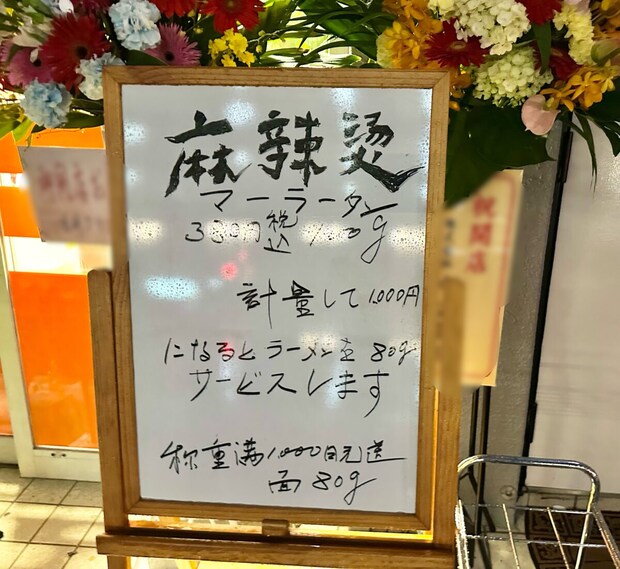 麻辣烫
マーラータン
380円税込/100g
計量して1,000円
になるとラーメンを80g
サービスします
称重满1,000日元送
面80g
祝開店